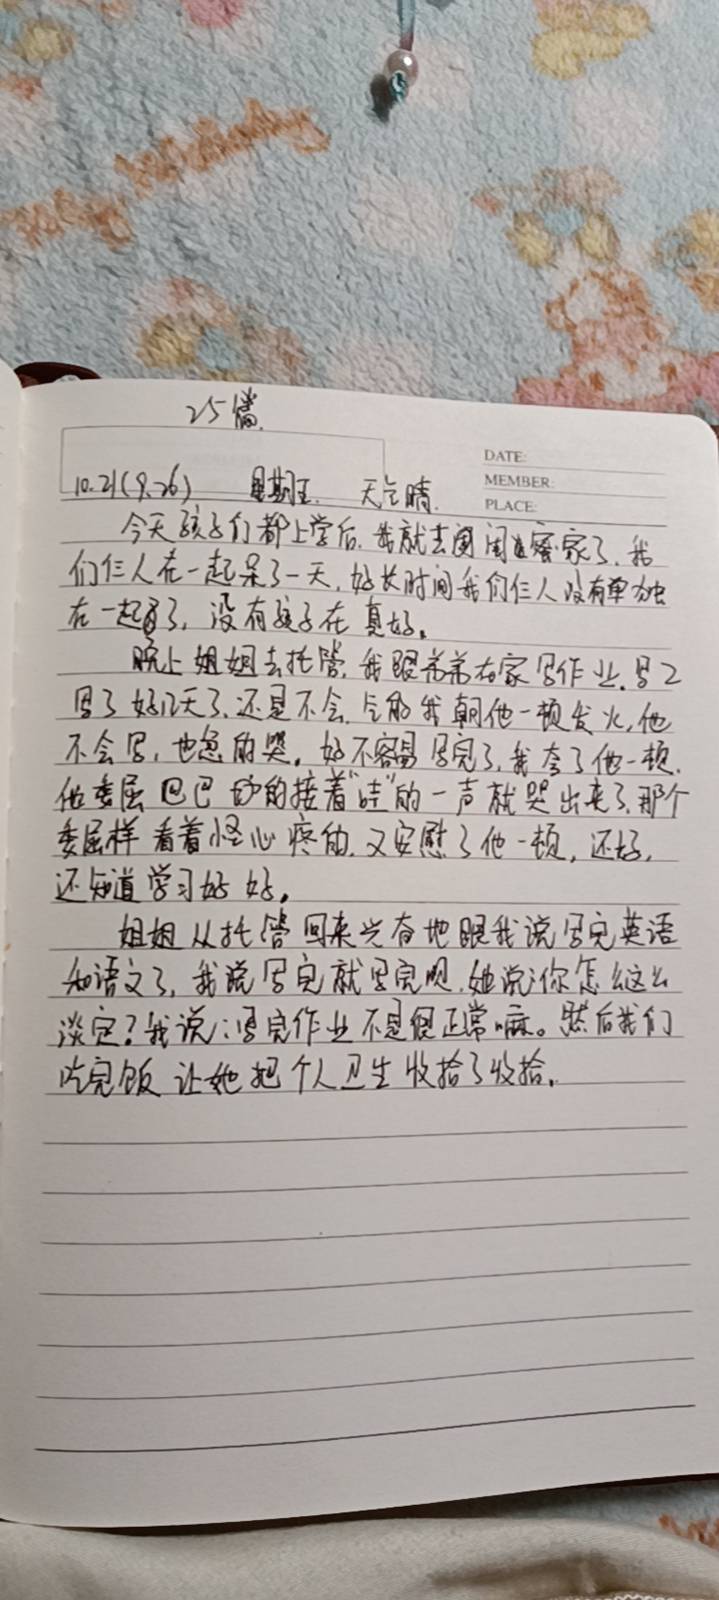 25篇.
DATE:
MEMBER:
PLACE:
10.21(9.26) 星期五. 天气晴.
今天孩子们都上学后,我就去闺蜜家了,我
们仨人在一起呆了一天,好长时间我们仨人没有单独
在一起了,没有孩子在真好。
晚上姐姐去托管,我跟弟弟在家写作业,写2
写了好几天了,还是不会,气的我朝他一顿发火,他
不会写,也急的哭。好不容易写完了,我夸了他一顿,
他委屈巴巴的接着“哇”的一声就哭出来了,那个
委屈样看着怪心疼的,又安慰了他一顿,还好,
还知道学习好好。
姐姐从托管回来兴奋地跟我说写完英语
和语文了,我说写完就写完呗,她说:你怎么这么
淡定?我说:写完作业不是很正常嘛。然后我们
吃完饭让她把个人卫生收拾了收拾。